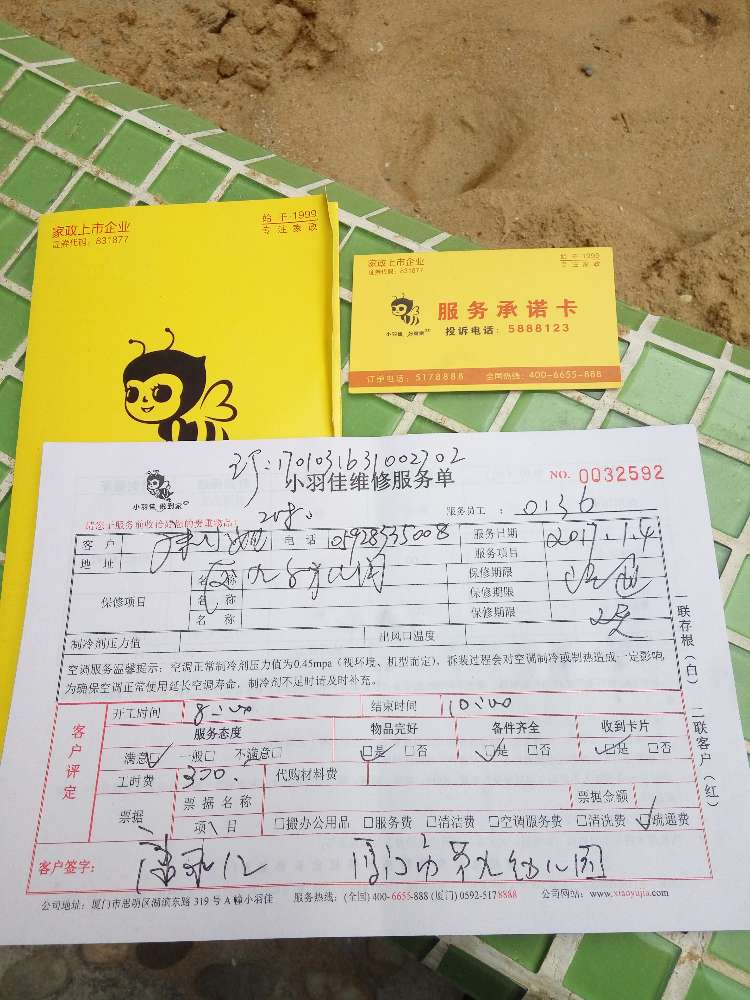 家政上市企业
证券代码：831877
始于·1999
专注家政
家政上市企业
证券代码：831877
始于·1999
专注家政
服务承诺卡
投诉电话：5888123
小羽佳
订单电话：5178888 全国热线：400-6655-888
1701031631002302
小羽佳 搬到家
小羽佳维修服务单
NO. 0032592
服务员工： 0136
请您于服务前收拾好您的贵重物品！
客户 电话 05928535008 服务日期 2017.1.4
地址 服务项目
保修项目 名称 保修期限
名称 保修期限
名称 保修期限
制冷剂压力值 出风口温度
空调服务温馨提示：空调正常制冷剂压力值为0.45mpa（视环境、机型而定），拆装过程会对空调制冷或制热造成一定影响，
为确保空调正常使用延长空调寿命，制冷剂不足时请及时补充。
一联存根（白） 二联客户（红）
客户评定
开工时间 8:00 结束时间 10:00
服务态度 物品完好 备件齐全 收到卡片
满意☑ 一般□ 不满意□ ☑是 □否 ☑是 □否 ☑是 □否
工时费 300. 代购材料费
票据 票据名称 票据金额
项目 □搬办公用品 □服务费 □清洁费 □空调服务费 □清洗费 ☑疏通费
客户签字： 厦门市第九幼儿园
公司地址：厦门市思明区湖滨东路 319 号 A 幢小羽佳 服务热线：(全国) 400-6655-888 (厦门) 0592-5178888 公司网站：www.xiaoyujia.com